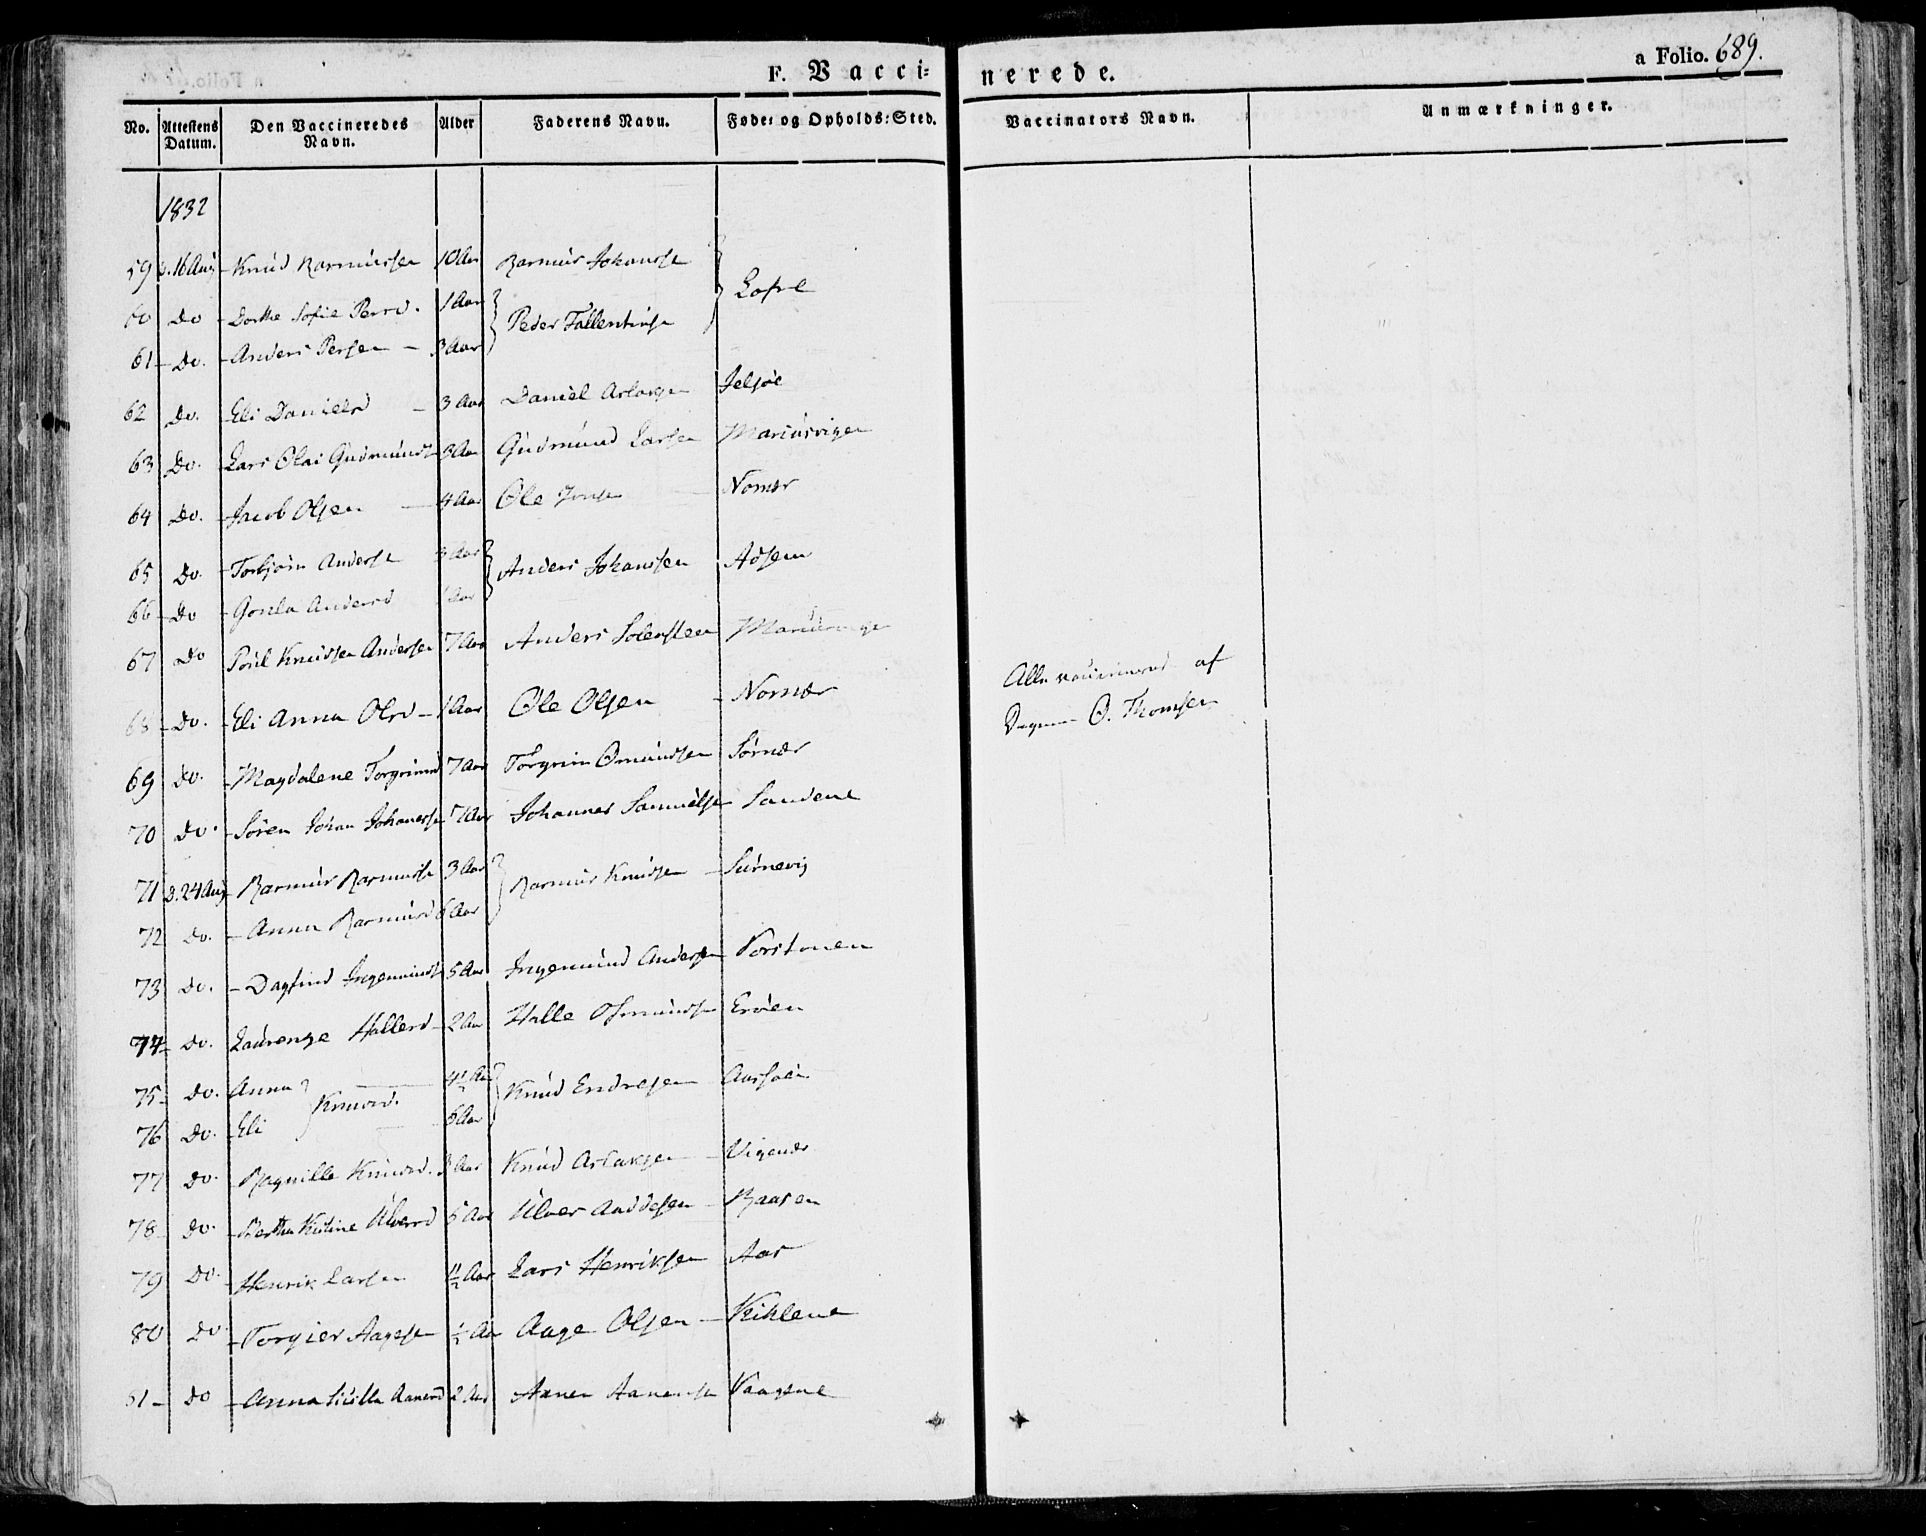 F. Vaccinerede.
a Folio. 689.
No. Attestens Datum. Den Vaccineredes Navn. Alder Faderens Navn. Føde- og Opholds-Sted. Vaccinators Navn. Anmærkninger.
1832
59 d. 16 Aug - Knud Rasmussen 10 Aar Rasmus Johanse
60 Do Dorthe Sofie Persd. 1 Aar Peder Fallentinse Lofre
61 - Do. - Anders Persen - 3 Aar
62 Do. - Eli Danielsd - 3 Aar Daniel Aslaksen Jelsøe
63 Do. - Lars Olai Gudmunds 3 Aar Gudmund Larsen Mariusvigen
64 Do. - Jacob Olsen 4 Aar Ole - Nomer
65 Do. - Torbjørn Anderse Aar Anders Johansen Adsem
66 - Do - Gonla Andersd 1 Aar
67 Do Poul Knudsen Andersen 7 Aar Anders Solemsteen
68 - Do. - Eli Anna Olsd - 1 Aar Ole Olsen - Nomær
Alle vaccinered af
O. Thomsen
69 Do. - Magdalene Torgrimsd 7 Aar Torgrim Omundsen Sørnær
70 Do. - Søren Johan Johanesse 7 Aar Johannes Samuelse - Sandene
71 d. 24 Aug - Rasmus Rasmusse 3 Aar Rasmus Knudsen - Surnevig
72 Do. - Anna Rasmusd 6 Aar
73 Do. - Dagfind Ingemunds 5 Aar Ingemund Andersen Vorstonen
74 - Do. Laurenze Hallesd - 2 Aar Halle Osmundse Erøen
75 - Do. Anna Knudsd. 4½ Aar Knud Endresen
76 Do. - Eli 6 Aar
77 Do. - Ragnille Knudsd. 3 Aar Knud Aslaksen - Vigenær
78 - Do. - Bertha Kistine Ulversd 5 Aar Ulver Anddesen - Raasen
79 Do. - Henrik Larsen 1½ Aar Lars Henriksen Aas
80 Do - Torgier Aagese ½ Aar Aage Olsen - Kihlene
81 - Do - Anna Sicilla Aanensd 2 Aar Aanen Aanense Vaagene